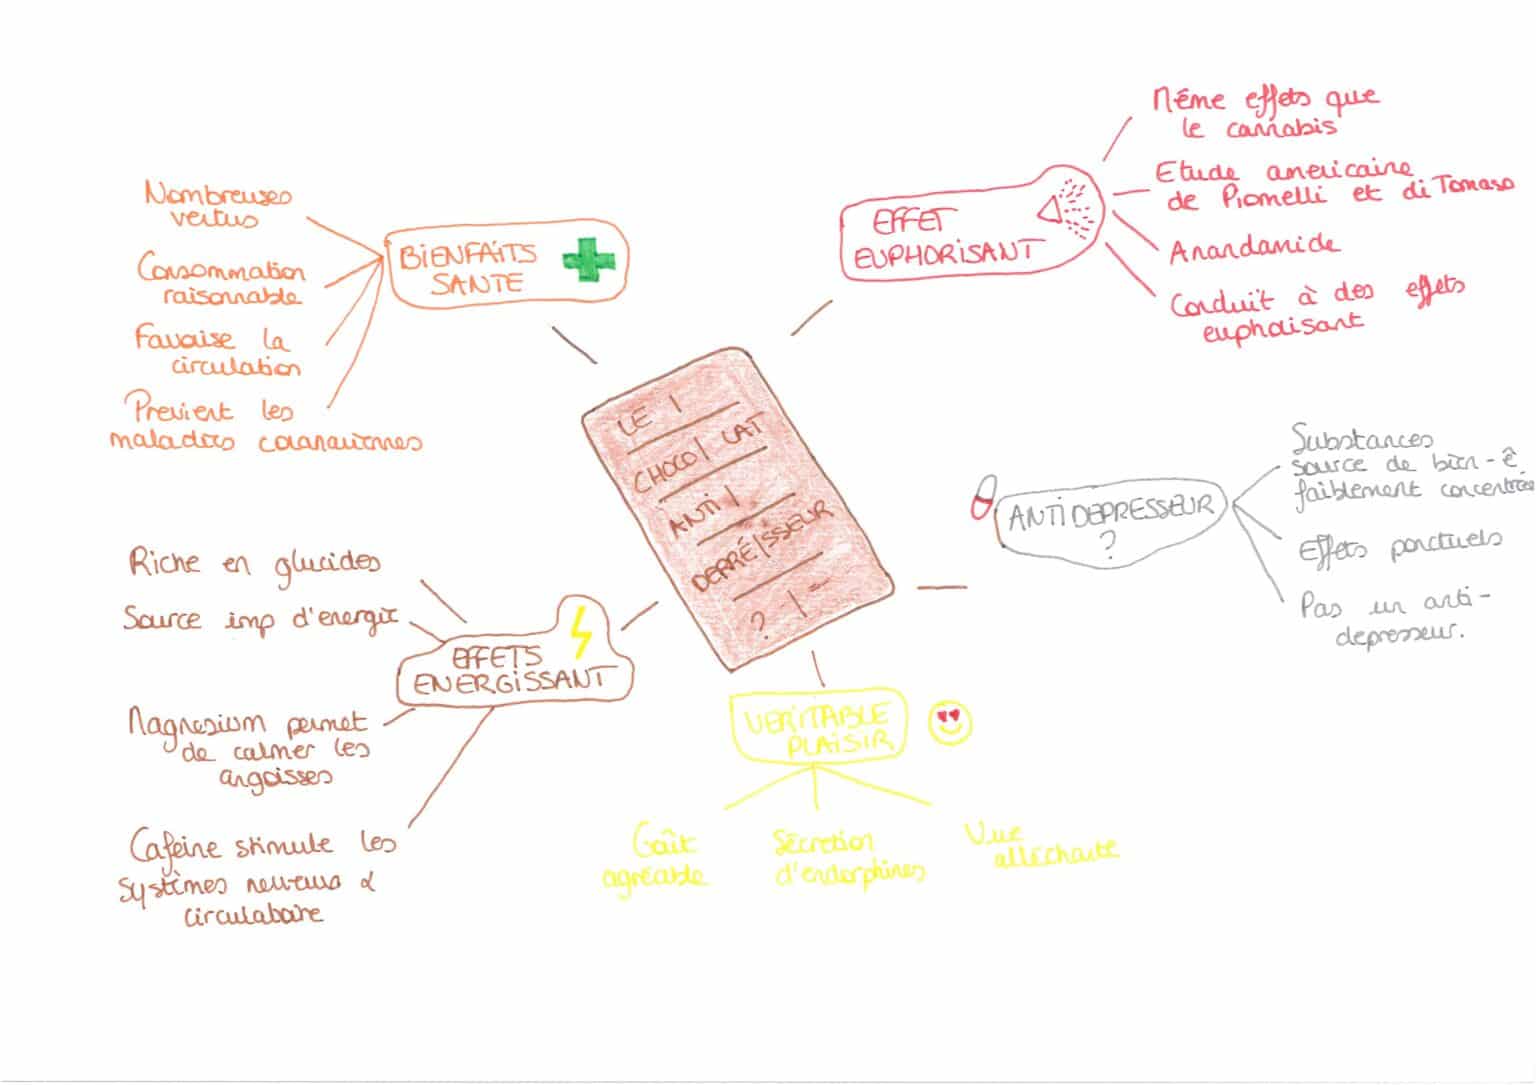 LE
CHOCO LAT
ANTI
DEPRÉ SSEUR
?
BIENFAITS
SANTE
Nombreuses
vertus
Consommation
raisonnable
Favorise la
circulation
Previent les
maladies coronariennes
EFFET
EUPHORISANT
Même effets que
le cannabis
Etude americaine
de Piomelli et di Tomaso
Anandamide
Conduit à des effets
euphorisant
ANTIDEPRESSEUR
?
Substances
source de bien-ê
faiblement concentrées
Effets ponctuels
Pas un anti-
depresseur.
VERITABLE
PLAISIR
Goût
agréable
Sécretion
d'endorphines
Vue
alléchante
EFFETS
ENERGISSANT
Riche en glucides
Source imp d'energie
Magnesium permet
de calmer les
angoisses
Cafeine stimule les
systèmes nerveux &
circulatoire